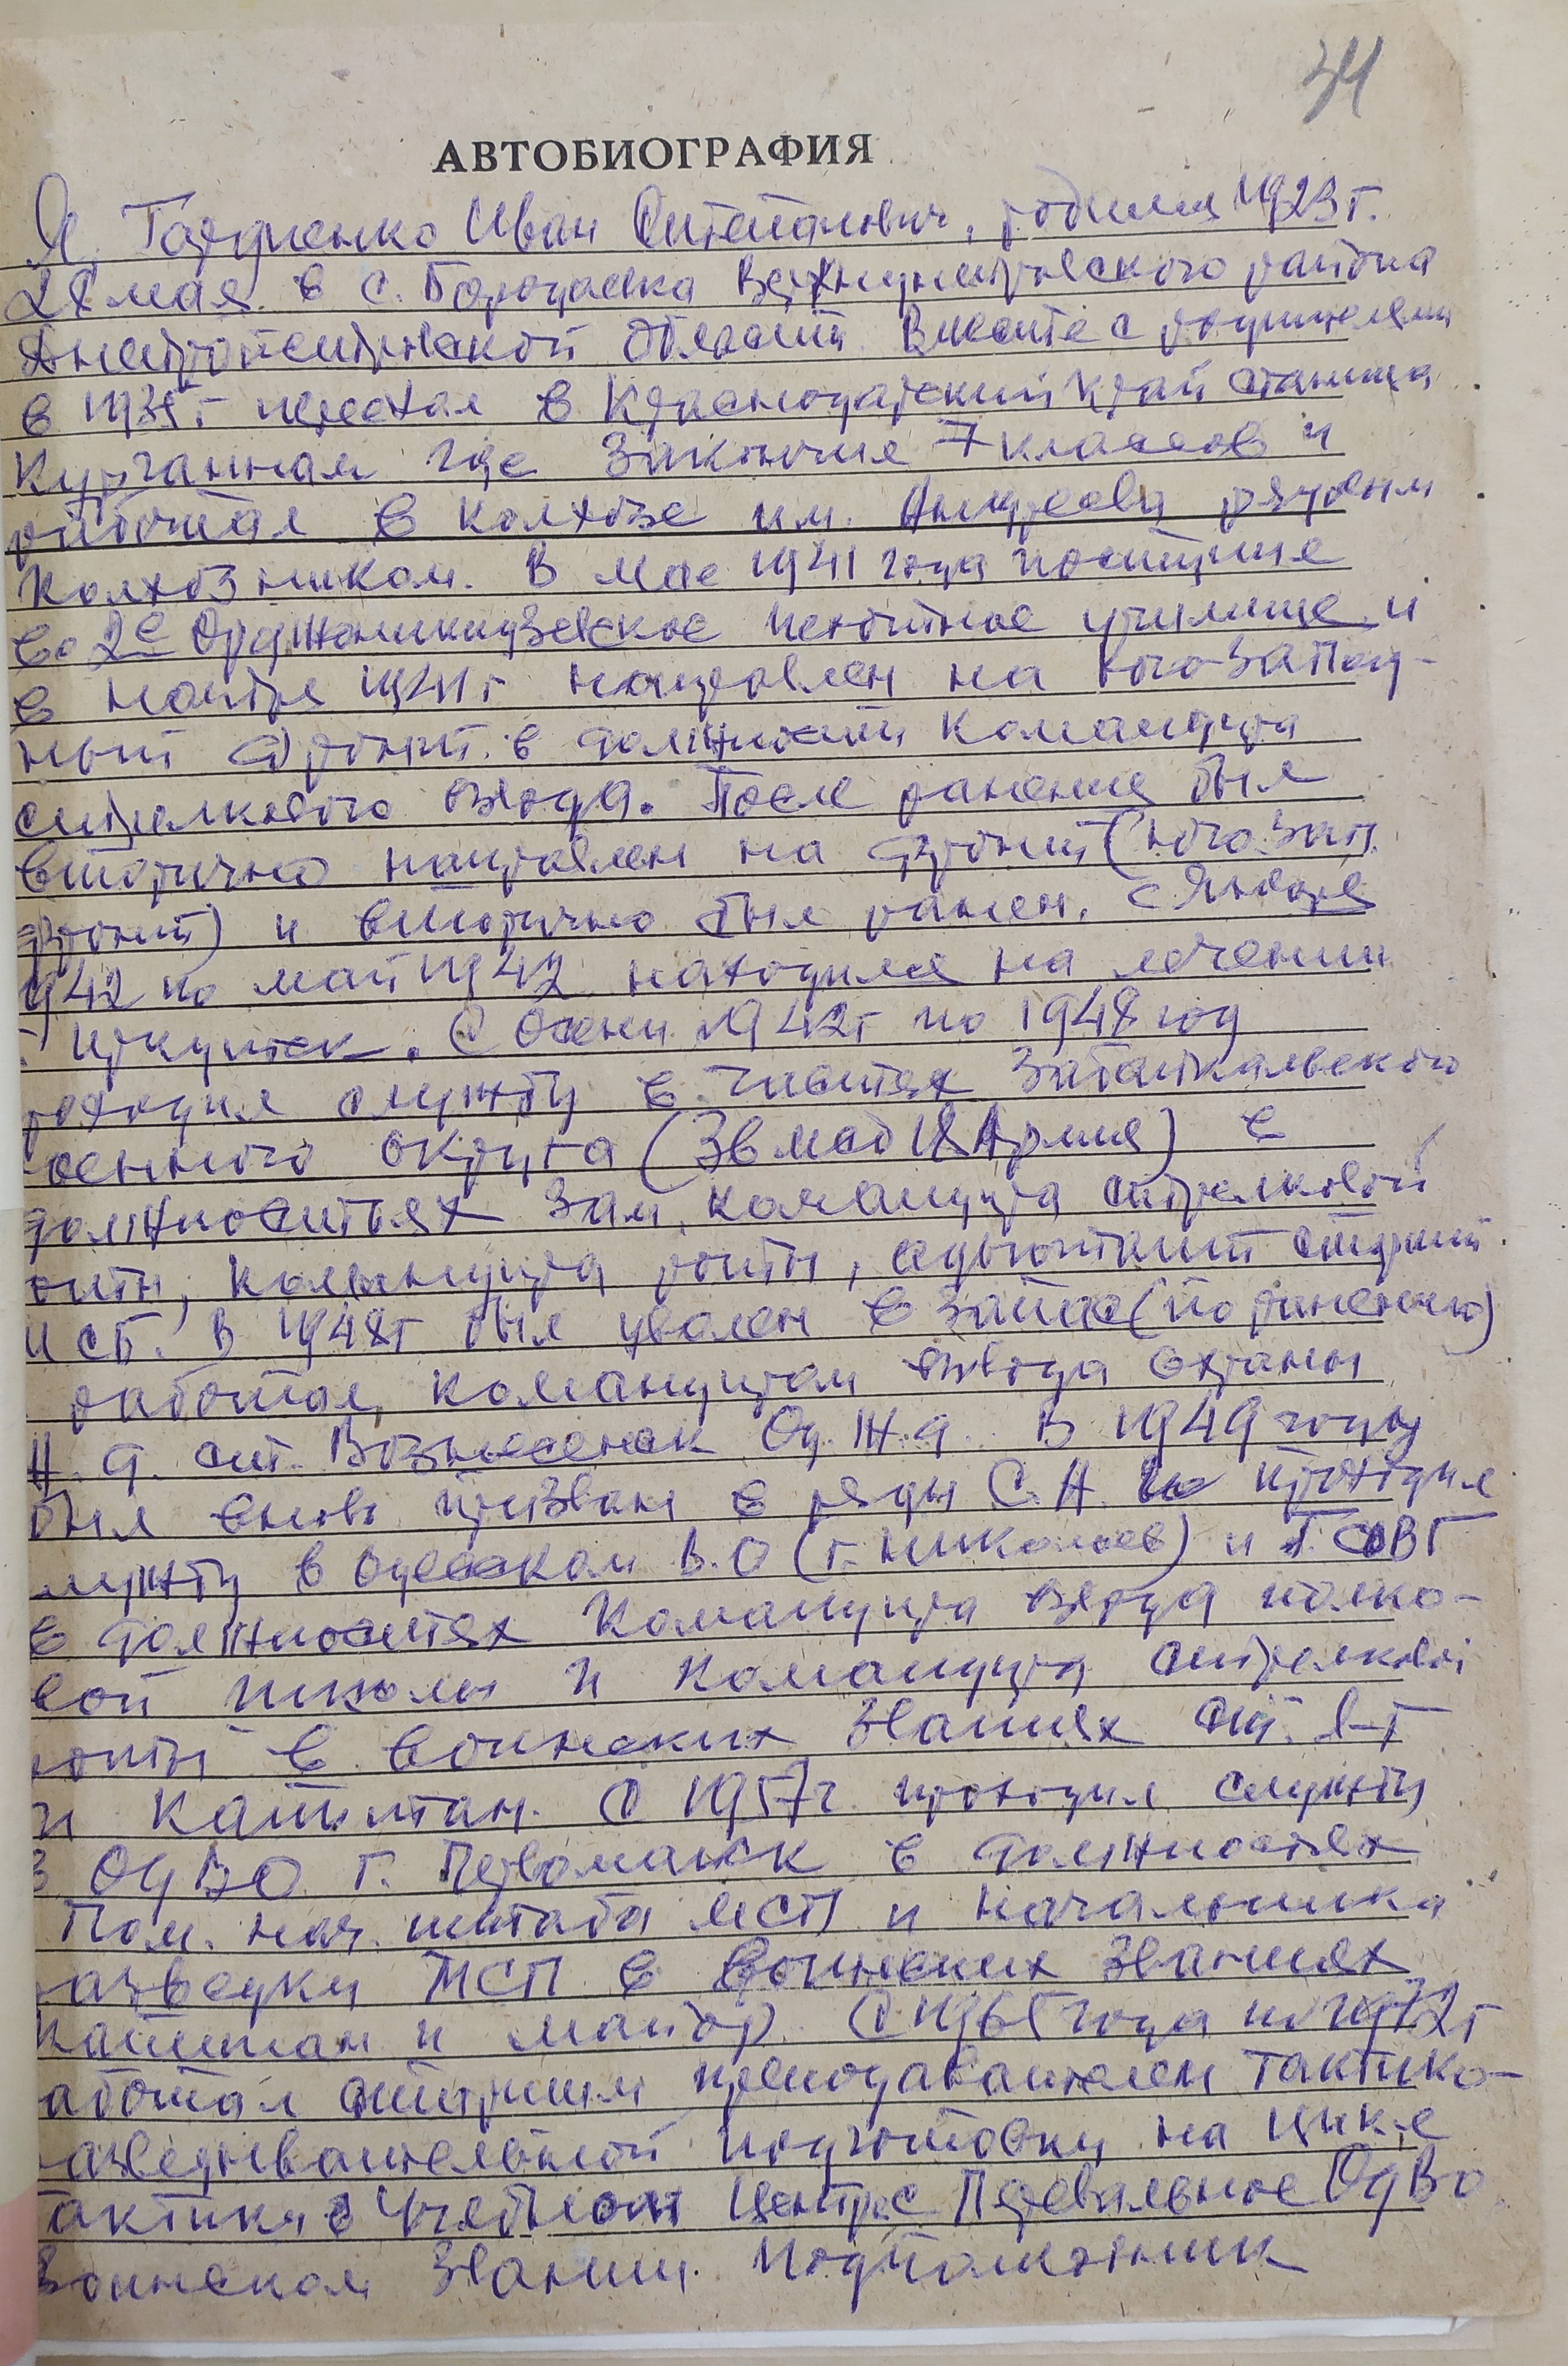 34
АВТОБИОГРАФИЯ
Я, Иван Степанович, родился 1923 г.
28 мая в с. Бородаевка Верхнеднепровского района
Днепропетровской области. Вместе с родителями
в 193 г. переехал в Краснодарский край станица
Курганная где закончил 7 классов и
работал в колхозе им. Андреева рядовым
колхозником. В мае 1941 года поступил
во 2е Орджоникидзевское пехотное училище и
в ноябре 1941 г направлен на Юго-Запад-
ный фронт в должности командира
стрелкового взвода. После ранения был
вторично направлен на фронт (Юго-Зап.
фронт) и вторично был ранен. С января
1942 по май 1942 находился на лечении
г. Иркутск. С осени 1942 г по 1948 год
роходил службу в частях Забайкальского
оенного округа (36 мсд 18 Армия) в
должностях зам. командира стрелковой
оты, командира роты, адъютант старший
ИСБ. В 1948 г был уволен в запас (по ранению)
работал командиром взвода охраны
ж. д. ст. Вознесенск Од. ж. д. В 1949 году
был вновь призван в ряды С.А. проходил
лужбу в Одесском В.О (г. Николаев) и ГСОВГ
в должностях командира взвода полко-
вой школы и командира стрелковой
роты в воинских званиях ст. л-т
и капитан. С 1957 г. проходил службу
в ОдВО г. Первомайск в должностях
Пом. нач. штаба МСП и начальника
разведки МСП в воинских званиях
капитан и майор. С 1965 года по 1972 г
аботал старшим преподавателем тактико-
азведывательной подготовки на цикле
тактики в Учебном центре Перевальное ОдВО
Воинском звании подполковник